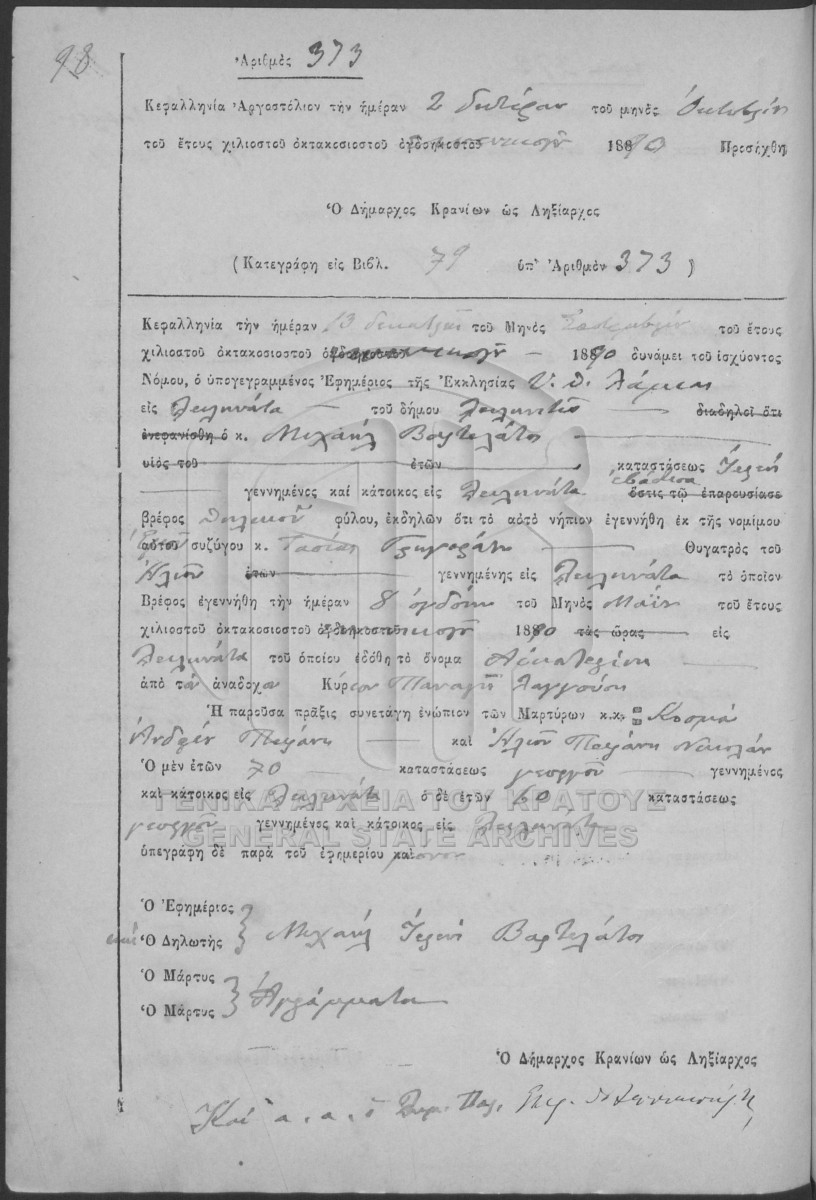 98
Ἀριθμὸς 373
Κεφαλληνία Ἀργοστόλιον τὴν ἡμέραν 2 δευτέραν τοῦ μηνὸς Ὀκτωβρίου
τοῦ ἔτους χιλιοστοῦ ὀκτακοσιοστοῦ ὀγδοηκοστοῦ 1890 Προσήχθη
Ὁ Δήμαρχος Κρανίων ὡς Ληξίαρχος
(Κατεγράφη εἰς Βιβλ. 79 ὑπ' Ἀριθμὸν 373)
Κεφαλληνία τὴν ἡμέραν 13 δεκάτην τοῦ Μηνὸς Σεπτεμβρίου τοῦ ἔτους
χιλιοστοῦ ὀκτακοσιοστοῦ ὀγδοηκοστοῦ 1890 δυνάμει τοῦ ἰσχύοντος
Νόμου, ὁ ὑπογεγραμμένος Ἐφημέριος τῆς Ἐκκλησίας Υ. Θ. Λάμιας
εἰς τοῦ δήμου διαδηλοῖ ὅτι
ἐνεφανίσθη ὁ κ. Μιχαὴλ Βαρτελάτος
υἱὸς τοῦ ἐτῶν καταστάσεως Ἱερεὺς
γεννημένος καὶ κάτοικος εἰς Φειληνάτα ἐβάπτισα ὅστις τῷ ἐπαρουσίασε
βρέφος θηλυκοῦ φύλου, ἐκδηλῶν ὅτι τὸ αὐτὸ νήπιον ἐγεννήθη ἐκ τῆς νομίμου
αὐτοῦ συζύγου κ. Τασίας Θυγατρὸς τοῦ
Ἠλιοῦ ἐτῶν γεννημένης εἰς Φειληνάτα τὸ ὁποῖον
Βρέφος ἐγεννήθη τὴν ἡμέραν 8 ὀγδόην τοῦ Μηνὸς Μαΐου τοῦ ἔτους
χιλιοστοῦ ὀκτακοσιοστοῦ ὀγδοηκοστοῦ 1890 τὰς ὥρας εἰς
Φειληνάτα τοῦ ὁποίου ἐδόθη τὸ ὄνομα Αἰκατερίνη
ἀπὸ τὸν ἀνάδοχον Κύριον Παναγῆ
Ἡ παροῦσα πρᾶξις συνετάγη ἐνώπιον τῶν Μαρτύρων κ.κ. Κοσμᾶ
Ἀνδρέου καὶ Ἠλιοῦ Νικολάου
Ὁ μὲν ἐτῶν 70 καταστάσεως γεωργοῦ γεννημένος
καὶ κάτοικος εἰς Φειληνάτα ὁ δὲ ἐτῶν 60 καταστάσεως
γεωργοῦ γεννημένος καὶ κάτοικος εἰς Φειληνάτα
ὑπεγράφη δὲ παρὰ τοῦ ἐφημερίου καὶ μόνου
ΓΕΝΙΚΑ ΑΡΧΕΙΑ ΤΟΥ ΚΡΑΤΟΥΣ
GENERAL STATE ARCHIVES
Ὁ Ἐφημέριος
καὶ Ὁ Δηλωτὴς Μιχαὴλ Ἱερεὺς Βαρτελάτος
Ὁ Μάρτυς
Ὁ Μάρτυς Ἀγράμματοι
Ὁ Δήμαρχος Κρανίων ὡς Ληξίαρχος